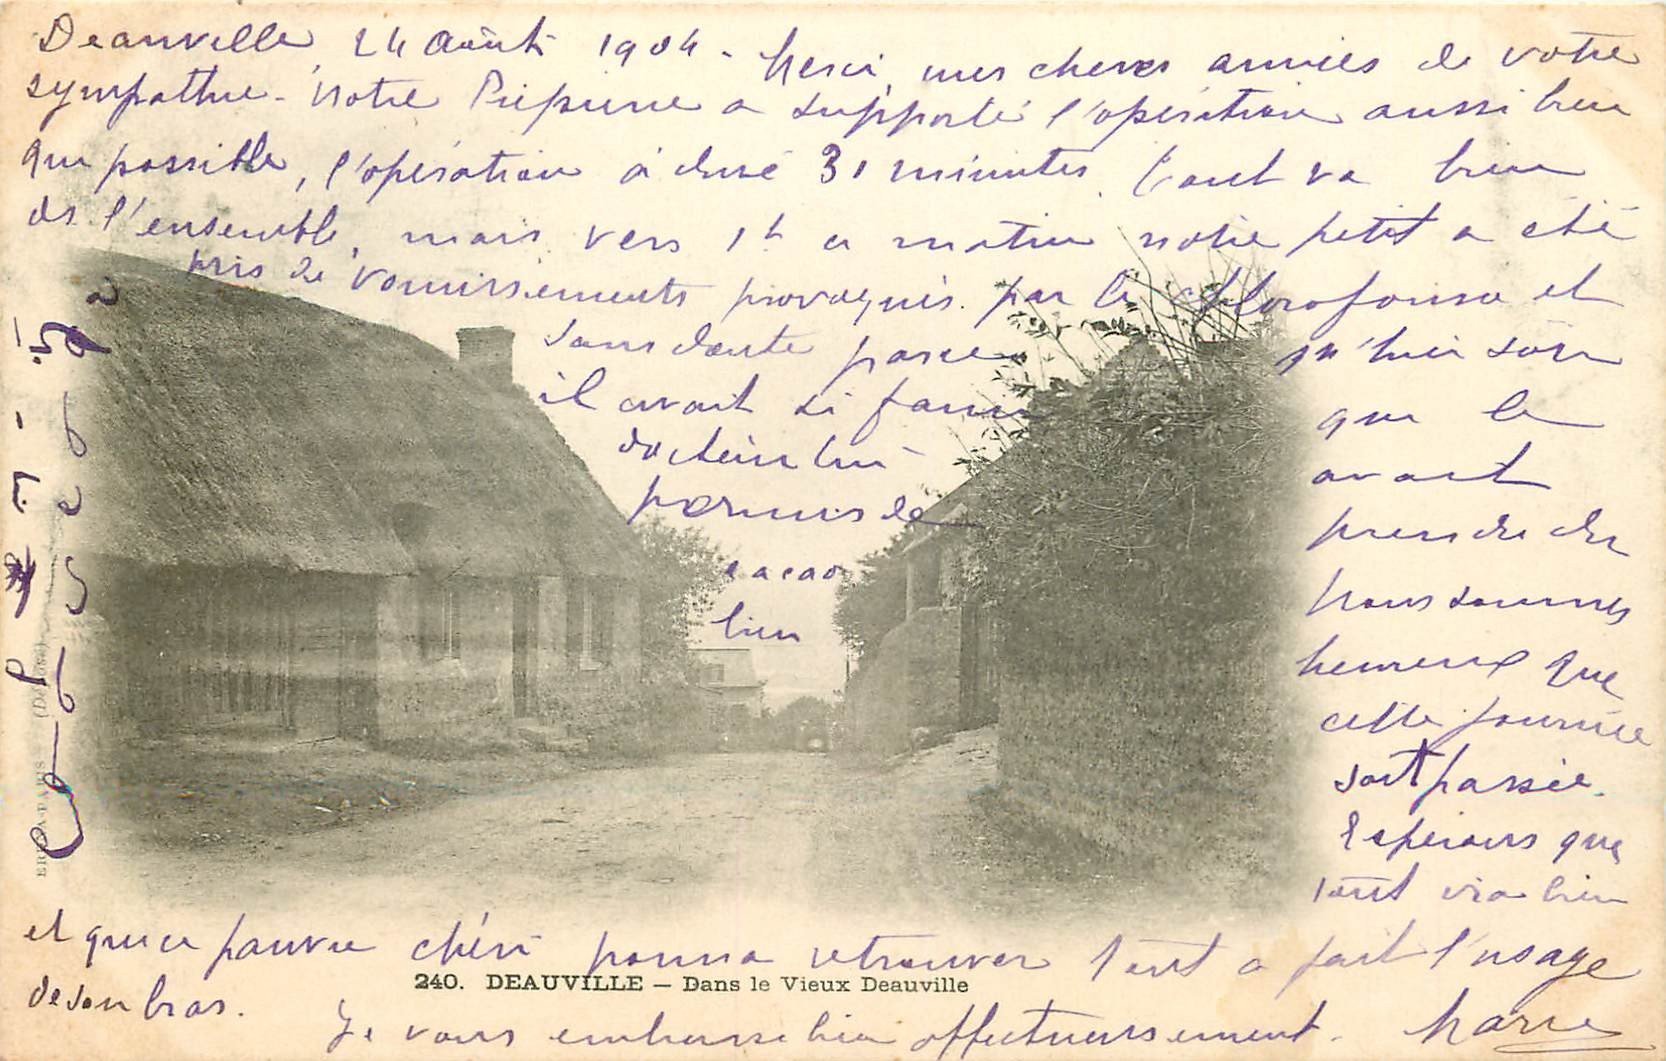 Deauville, 24 Août 1904 - Merci, mes cheres amies de votre
sympathie - Notre a supporté l'opération aussi bien
que possible, l'opération a duré 31 minutes. Tout va bien
ds l'ensemble, mais vers 1h ce matin notre petit a été
pris de vomissements provoqués par le Chloroforme et
sans doute parce qu'hier soir
il avait si faim que le
docteur lui avait
permis de prendre du
cacao Nous sommes
bien heureux que
cette journée
soit passée.
Espérons que
tout ira bien
et que ce pauvre chéri pourra retrouver tout a fait l'usage
de son bras.
240. DEAUVILLE — Dans le Vieux Deauville
Je vous embrasse bien affectueusement. Marie
PARIS